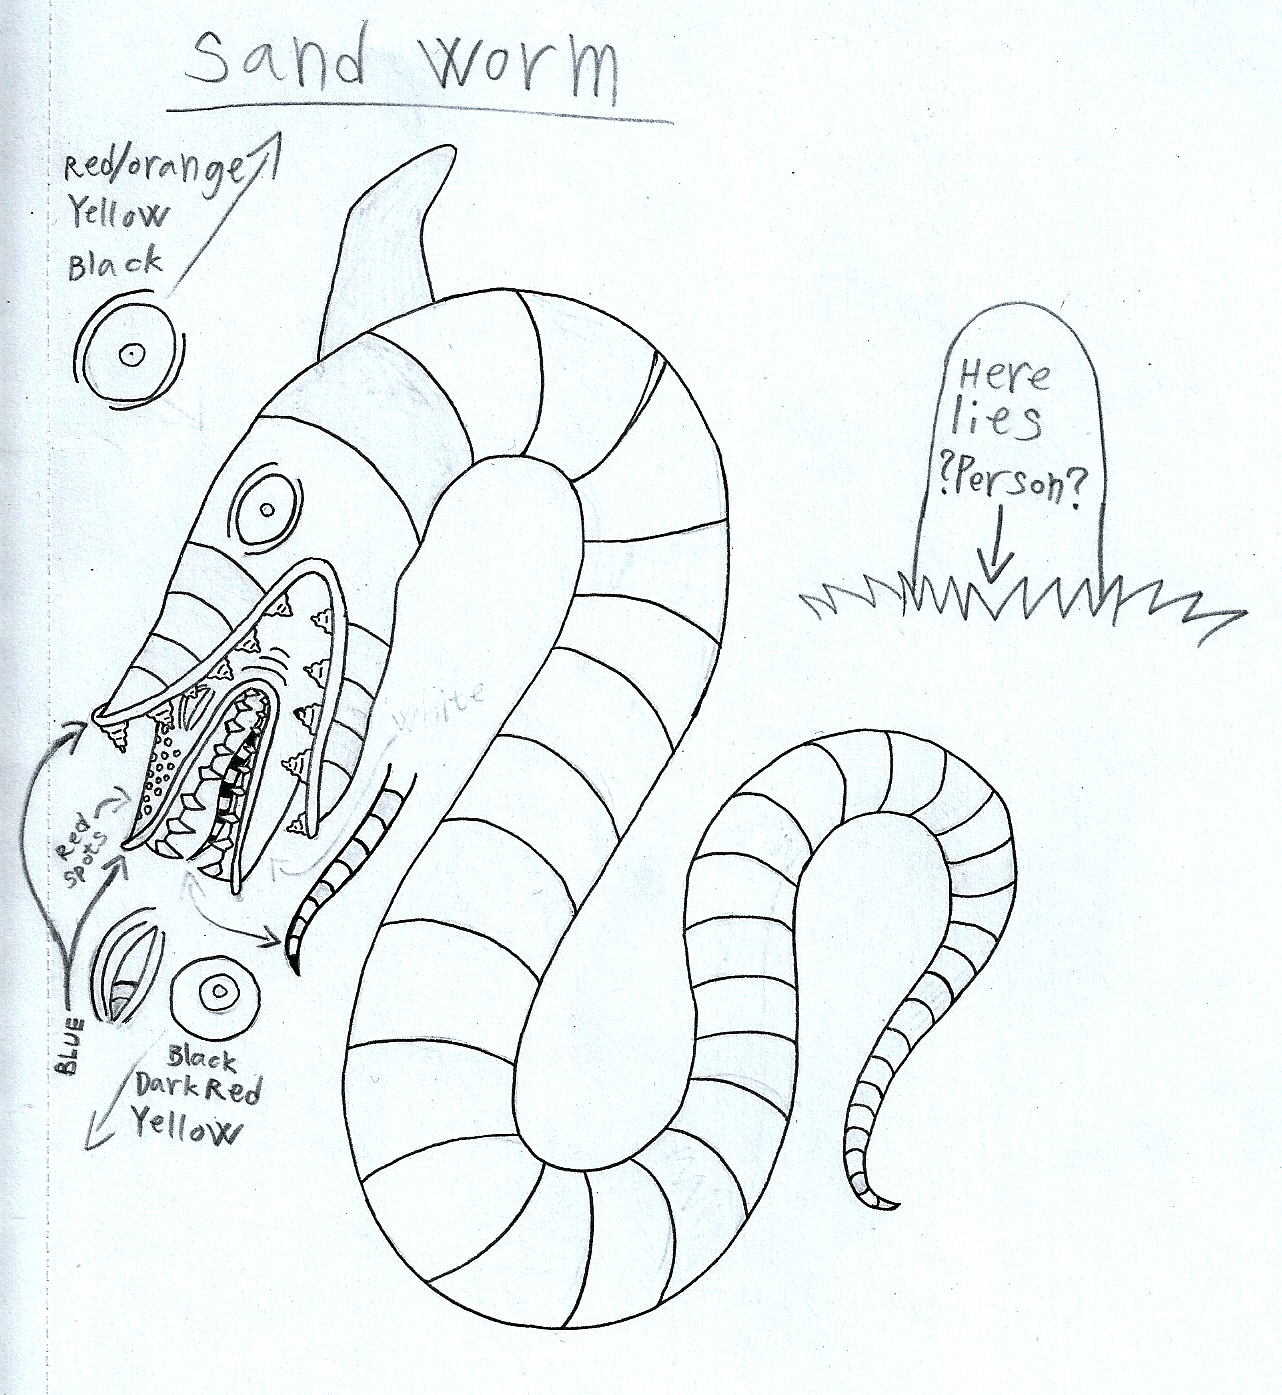 Sand Worm
Red/orange
Yellow
Black
Here
lies
?Person?
White
Red
spots
BLUE
Black
Dark Red
Yellow